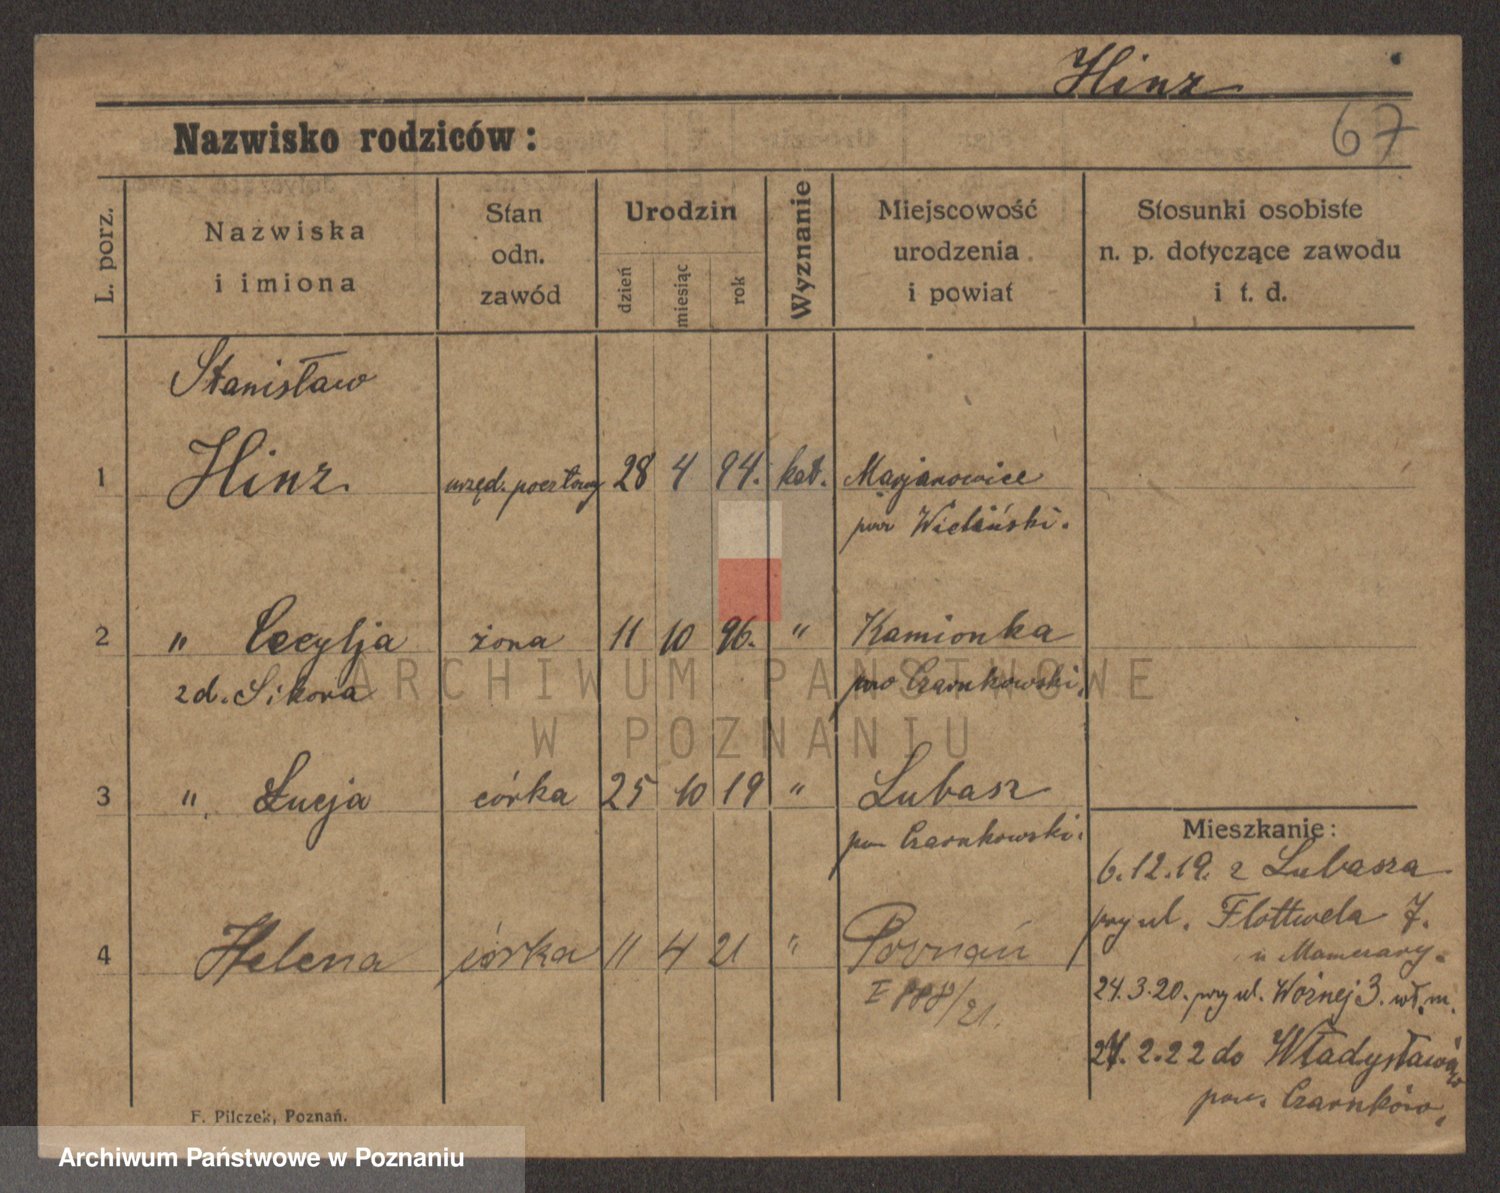 Hinz
67
Nazwisko rodziców:
L. porz.
Nazwiska
i imiona
Stan
odn.
zawód
Urodzin
dzień
miesiąc
rok
Wyznanie
Miejscowość
urodzenia
i powiat
Stosunki osobiste
n. p. dotyczące zawodu
i t. d.
Stanisław
1 Hinz. urzęd. pocztowy 28 4 94. kat. Marjanowice
pow Wieluński.
2 " Cecylja żona 11 10 96. " Kamionka
zd. Sikora pow Czarnkowski.
3 " Łucja córka 25 10 19 " Lubasz
pow Czarnkowski.
4 Helena córka 11 4 21 " Poznań
I /21.
Mieszkanie:
6.12.19. z Lubasza
przy ul. Flottwela 7.
u
24.3.20. przy ul. Woźnej 3. wł. m.
27.2.22 do Władysławowo
pow. Czarnków.
F. Pilczek, Poznań.
ARCHIWUM PAŃSTWOWE
W POZNANIU
Archiwum Państwowe w Poznaniu